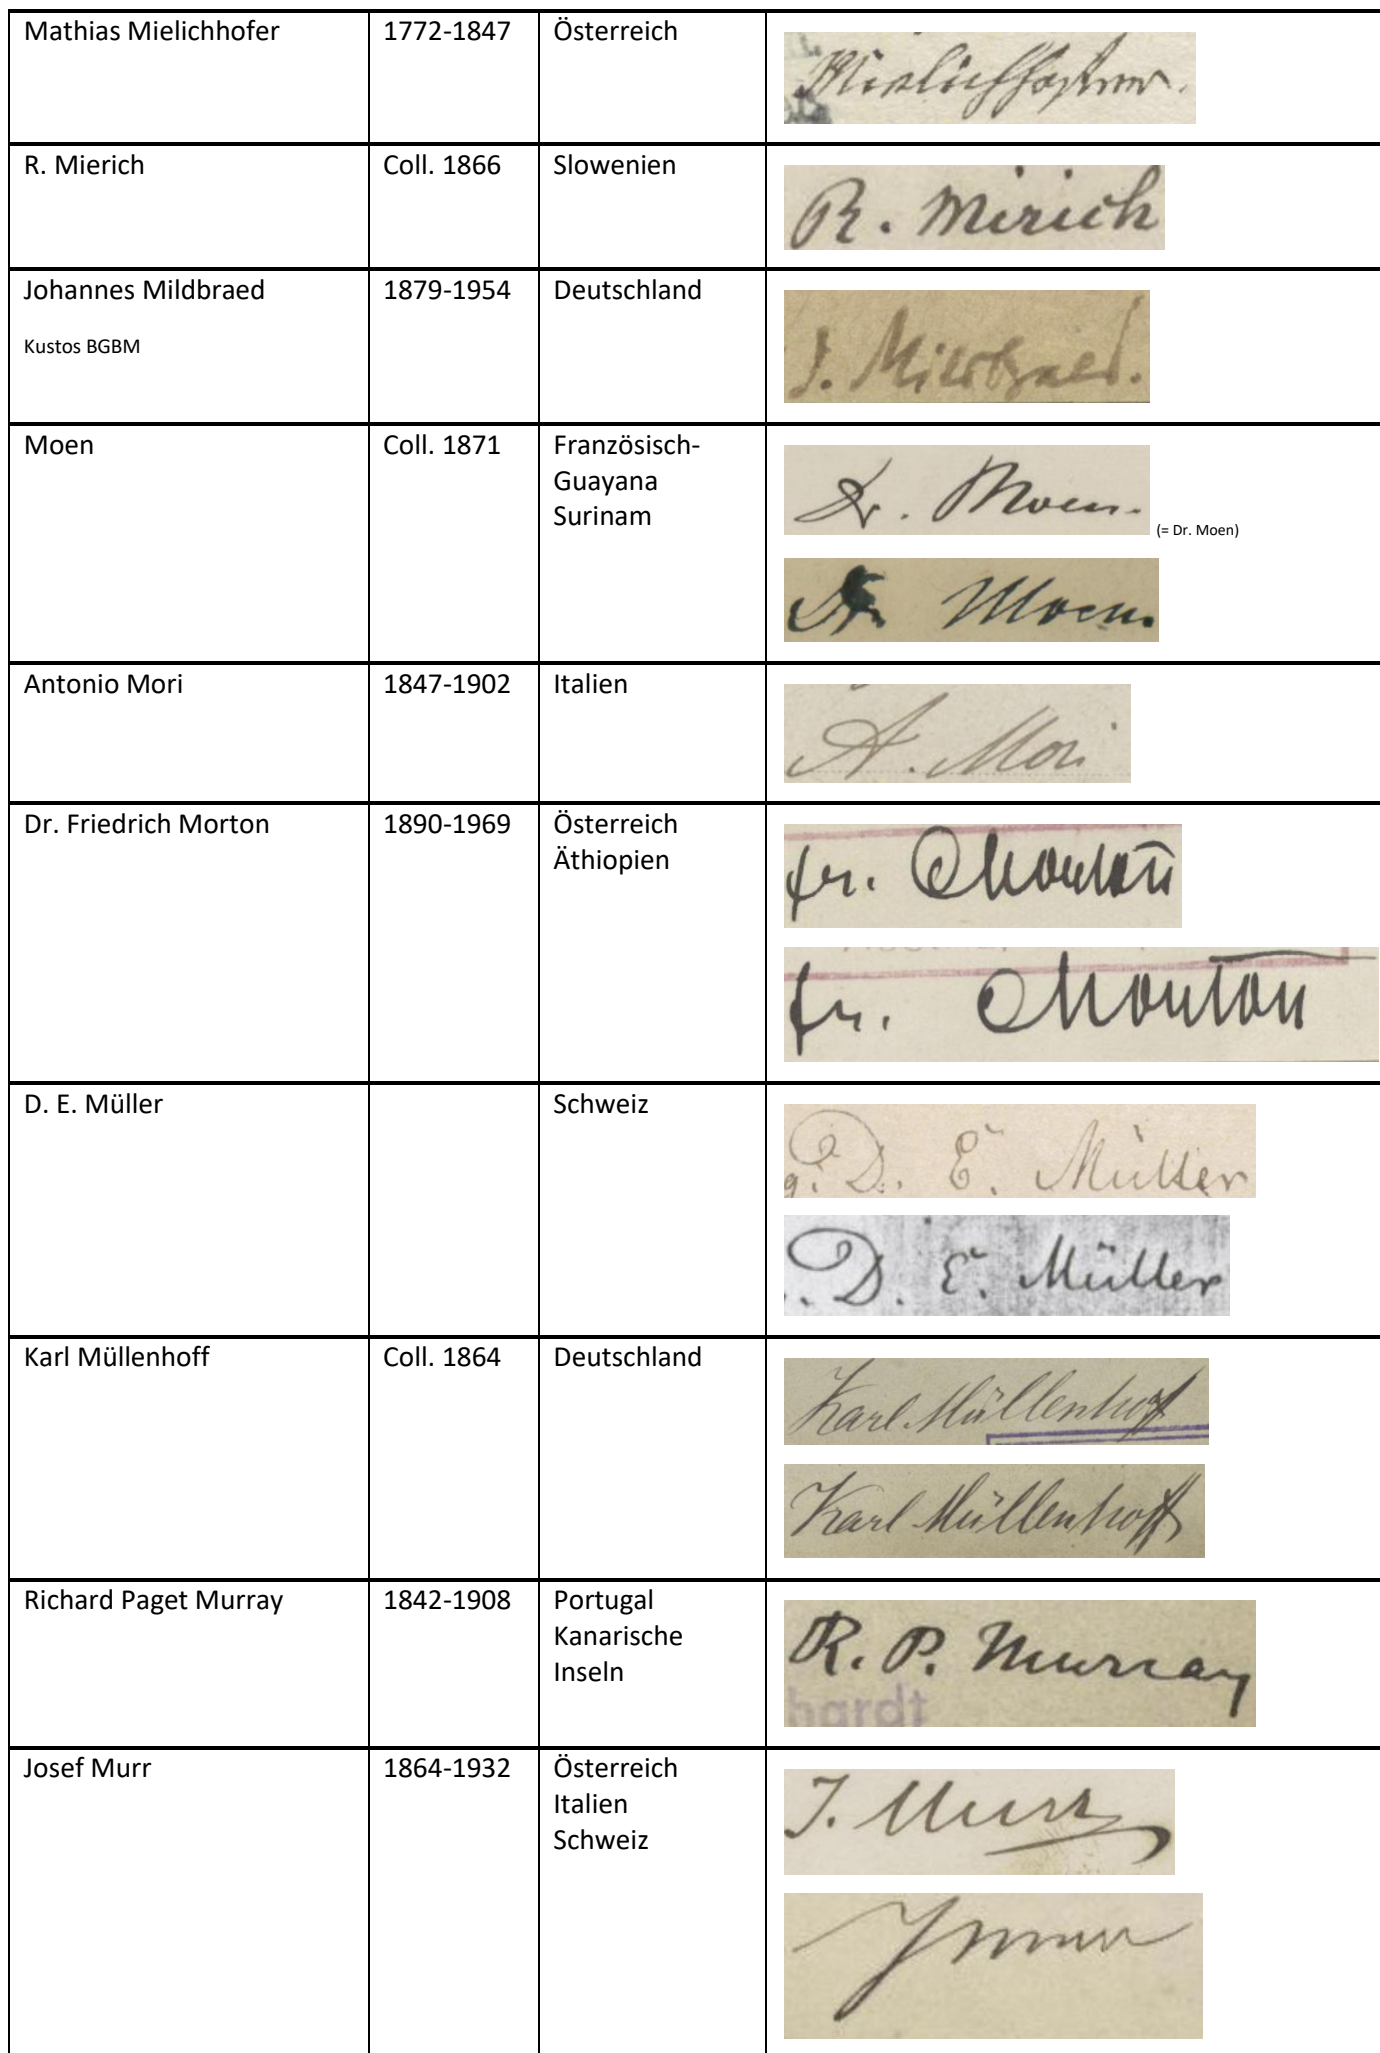 Mathias Mielichhofer 1772-1847 Österreich
Mielichhofer.
R. Mierich Coll. 1866 Slowenien
R. Mirich
Johannes Mildbraed 1879-1954 Deutschland
Kustos BGBM
J. Mildbraed.
Moen Coll. 1871 Französisch-
Guayana
Surinam
Dr. Moen. (= Dr. Moen)
Dr Moen.
Antonio Mori 1847-1902 Italien
A. Mori
Dr. Friedrich Morton 1890-1969 Österreich
Äthiopien
fr. Morton
fr. Morton
D. E. Müller Schweiz
g. D. E. Müller
. D. E. Müller
Karl Müllenhoff Coll. 1864 Deutschland
Karl Müllenhoff
Karl Müllenhoff
Richard Paget Murray 1842-1908 Portugal
Kanarische
Inseln
R. P. Murray
hardt
Josef Murr 1864-1932 Österreich
Italien
Schweiz
J. Murr
JMurr